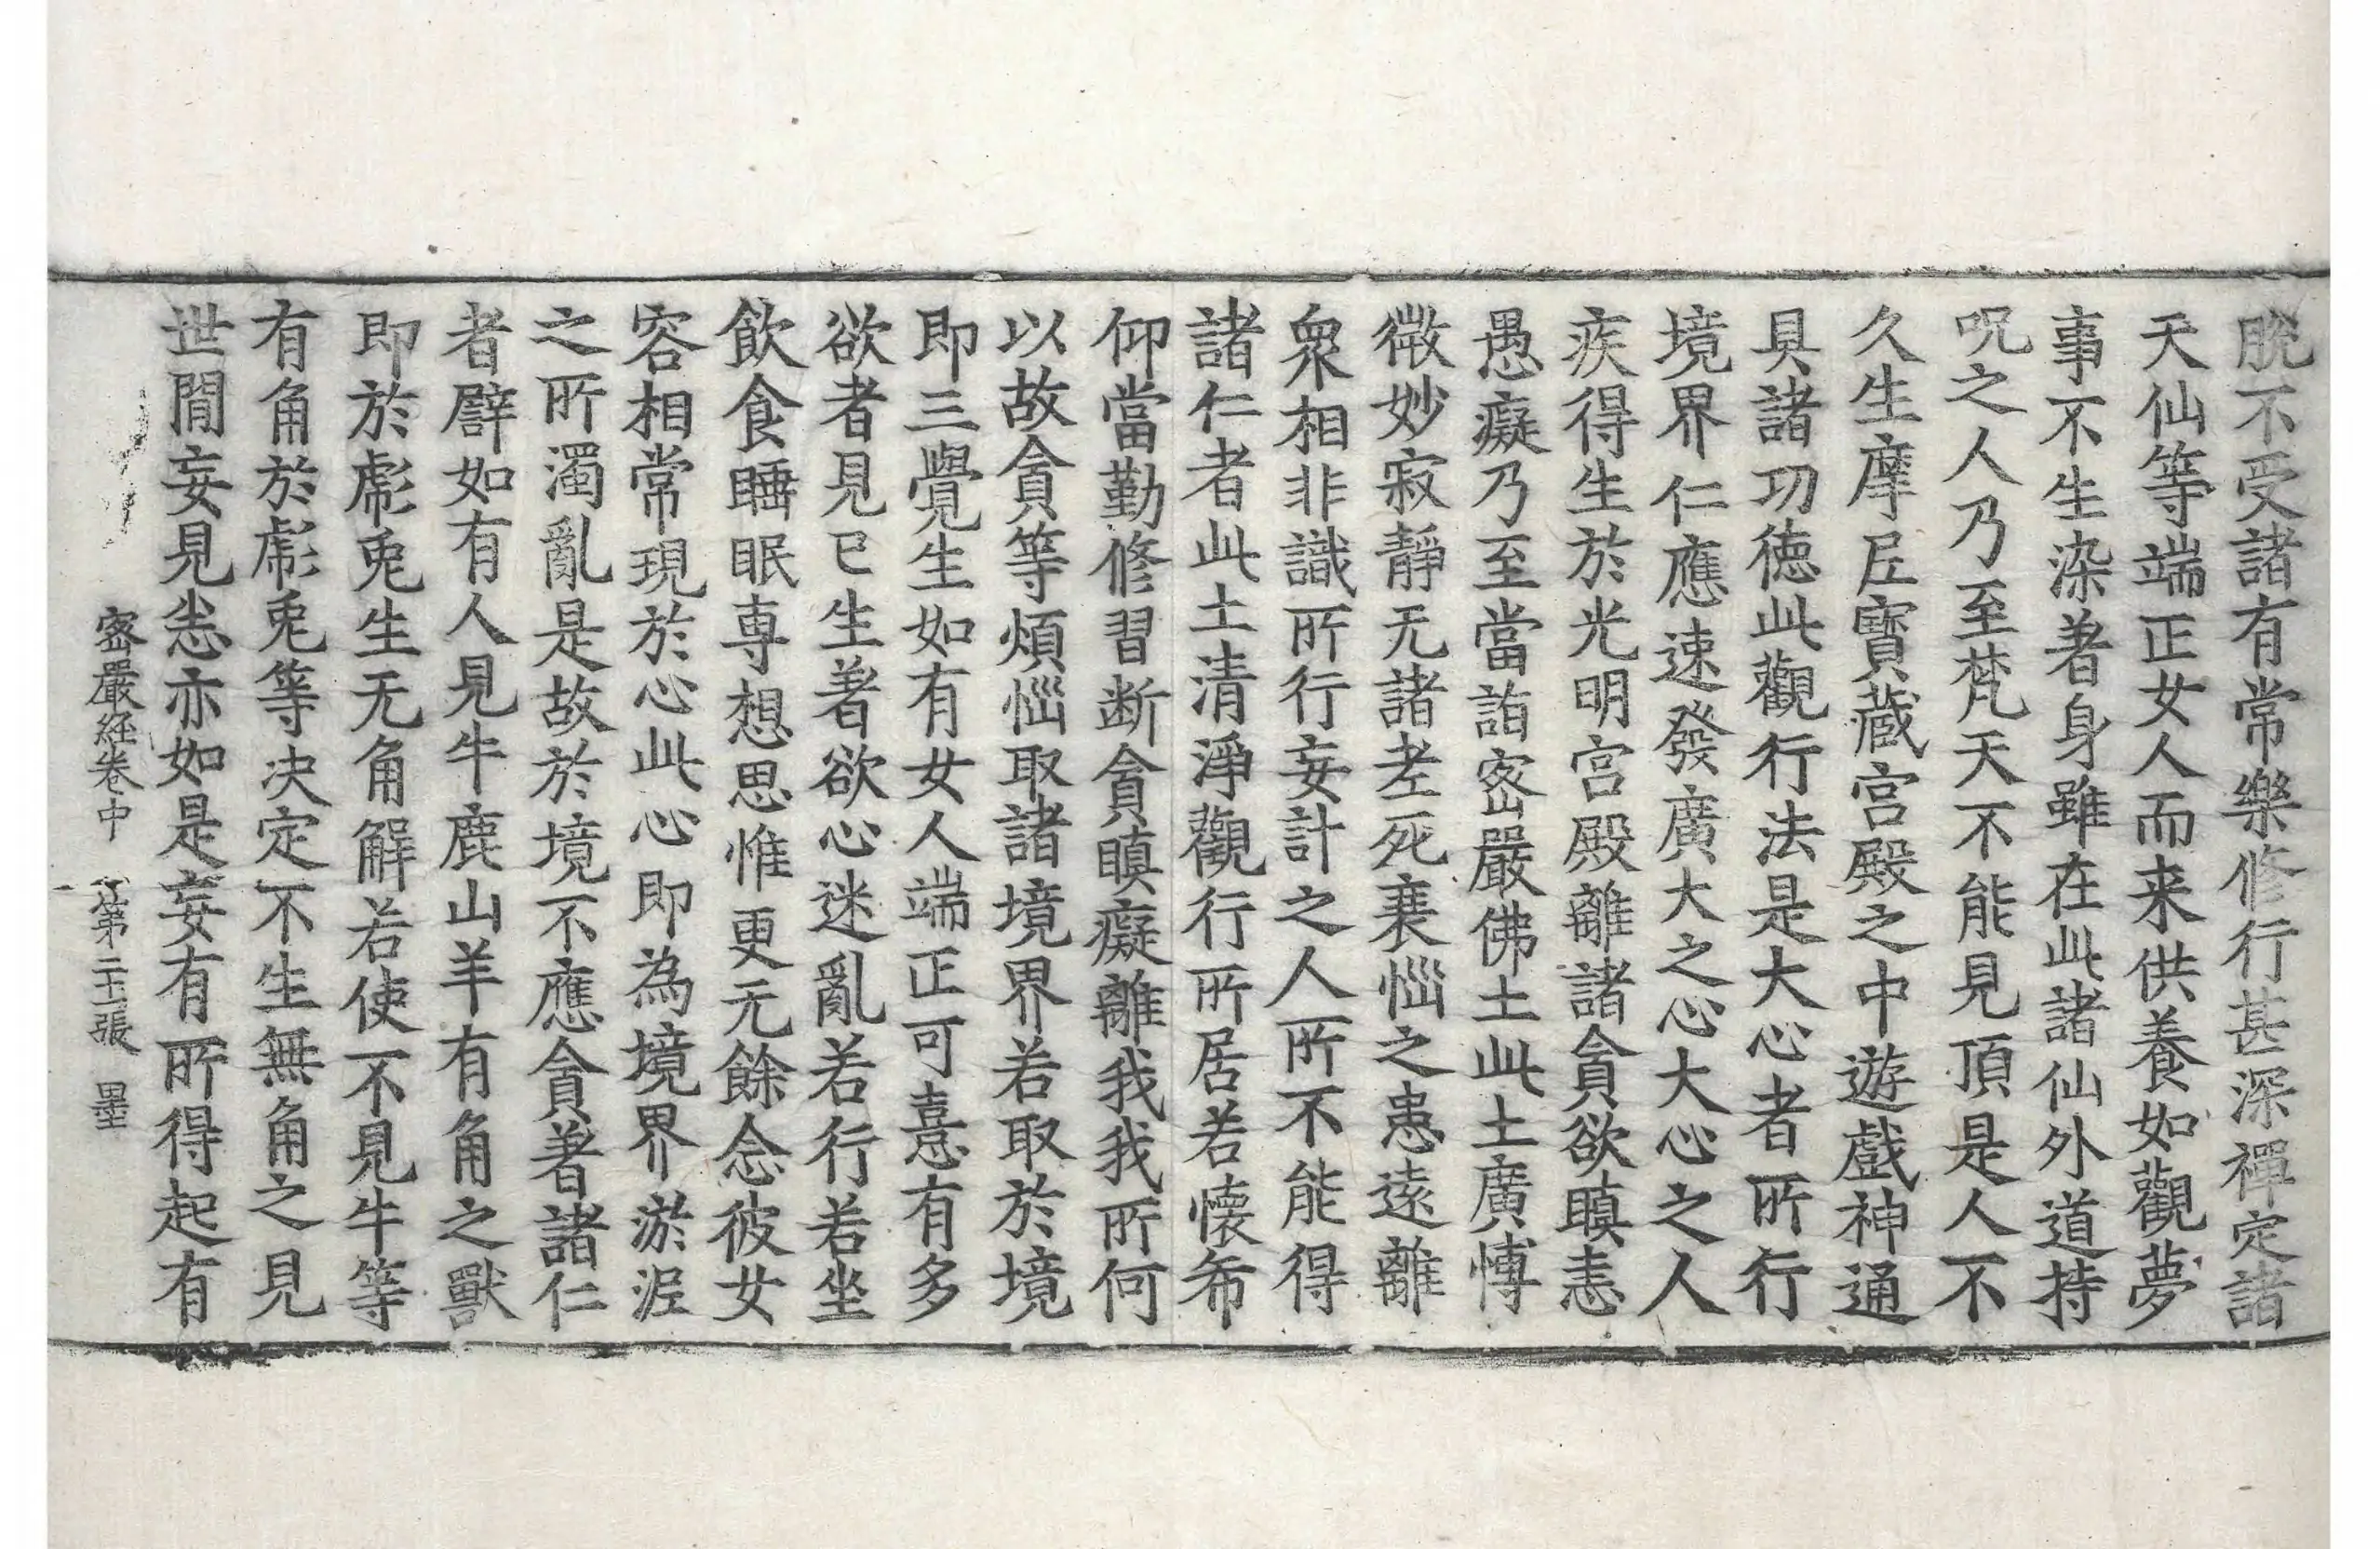 脫不受諸有常樂修行甚深禪定諸
天仙等端正女人而来供養如觀夢
事不生染著身雖在此諸仙外道持
呪之人乃至梵天不能見頂是人不
久生摩𡰱寶藏宫殿之中遊戲神通
具諸功徳此觀行法是大心者所行
境界仁應速發廣大之心大心之人
疾得生於光明宫殿離諸貪欲瞋恚
愚癡乃至當詣密嚴佛土此土廣愽
微妙寂靜无諸老死衰惱之患逺離
衆相非識所行妄計之人所不能得
諸仁者此土清淨觀行所居若懷希
仰當勤修習断貪瞋癡離我我所何
以故貪等煩惱取諸境界若取於境
即三覺生如有女人端正可憙有多
欲者見已生著欲心迷亂若行若坐
飲食睡眠專想思惟更无餘念彼女
容相常現於心此心即為境界淤泥
之所濁亂是故於境不應貪著諸仁
者譬如有人見牛鹿山羊有角之獸
即於彪兎生无角解若使不見牛等
有角於彪兎等决定不生無角之見
世間妄見悉亦如是妄有所得起有
密嚴經卷中 第二十二張 墨